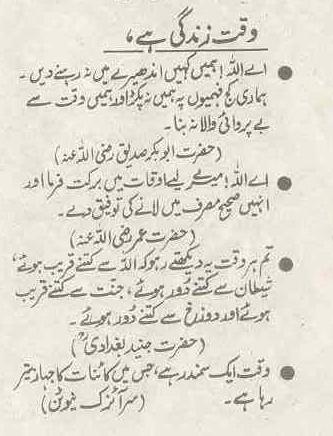 وقت زندگی ہے،
● اے اللہ! ہمیں کہیں اندھیرے میں نہ رہنے دیں۔
ہماری کج فہمیوں پہ ہمیں نہ پکڑ اور ہمیں وقت سے
بے پروائی والا نہ بنا۔
(حضرت ابوبکر صدیق رضی اللہ عنہ)
● اے اللہ! میرے لیے اوقات میں برکت فرما اور
انہیں صحیح مصرف میں لانے کی توفیق دے۔
(حضرت عمر رضی اللہ عنہ)
● تم ہر وقت یہ دیکھتے رہو کہ اللہ سے کتنے قریب ہوئے،
شیطان سے کتنے دُور ہوئے، جنت سے کتنے قریب
ہوئے اور دوزخ سے کتنے دُور ہوئے۔
(حضرت جنید بغدادیؒ)
● وقت ایک سمندر ہے، جس میں کائنات کا جہاز تیر
رہا ہے۔ (سر آئزک نیوٹن)